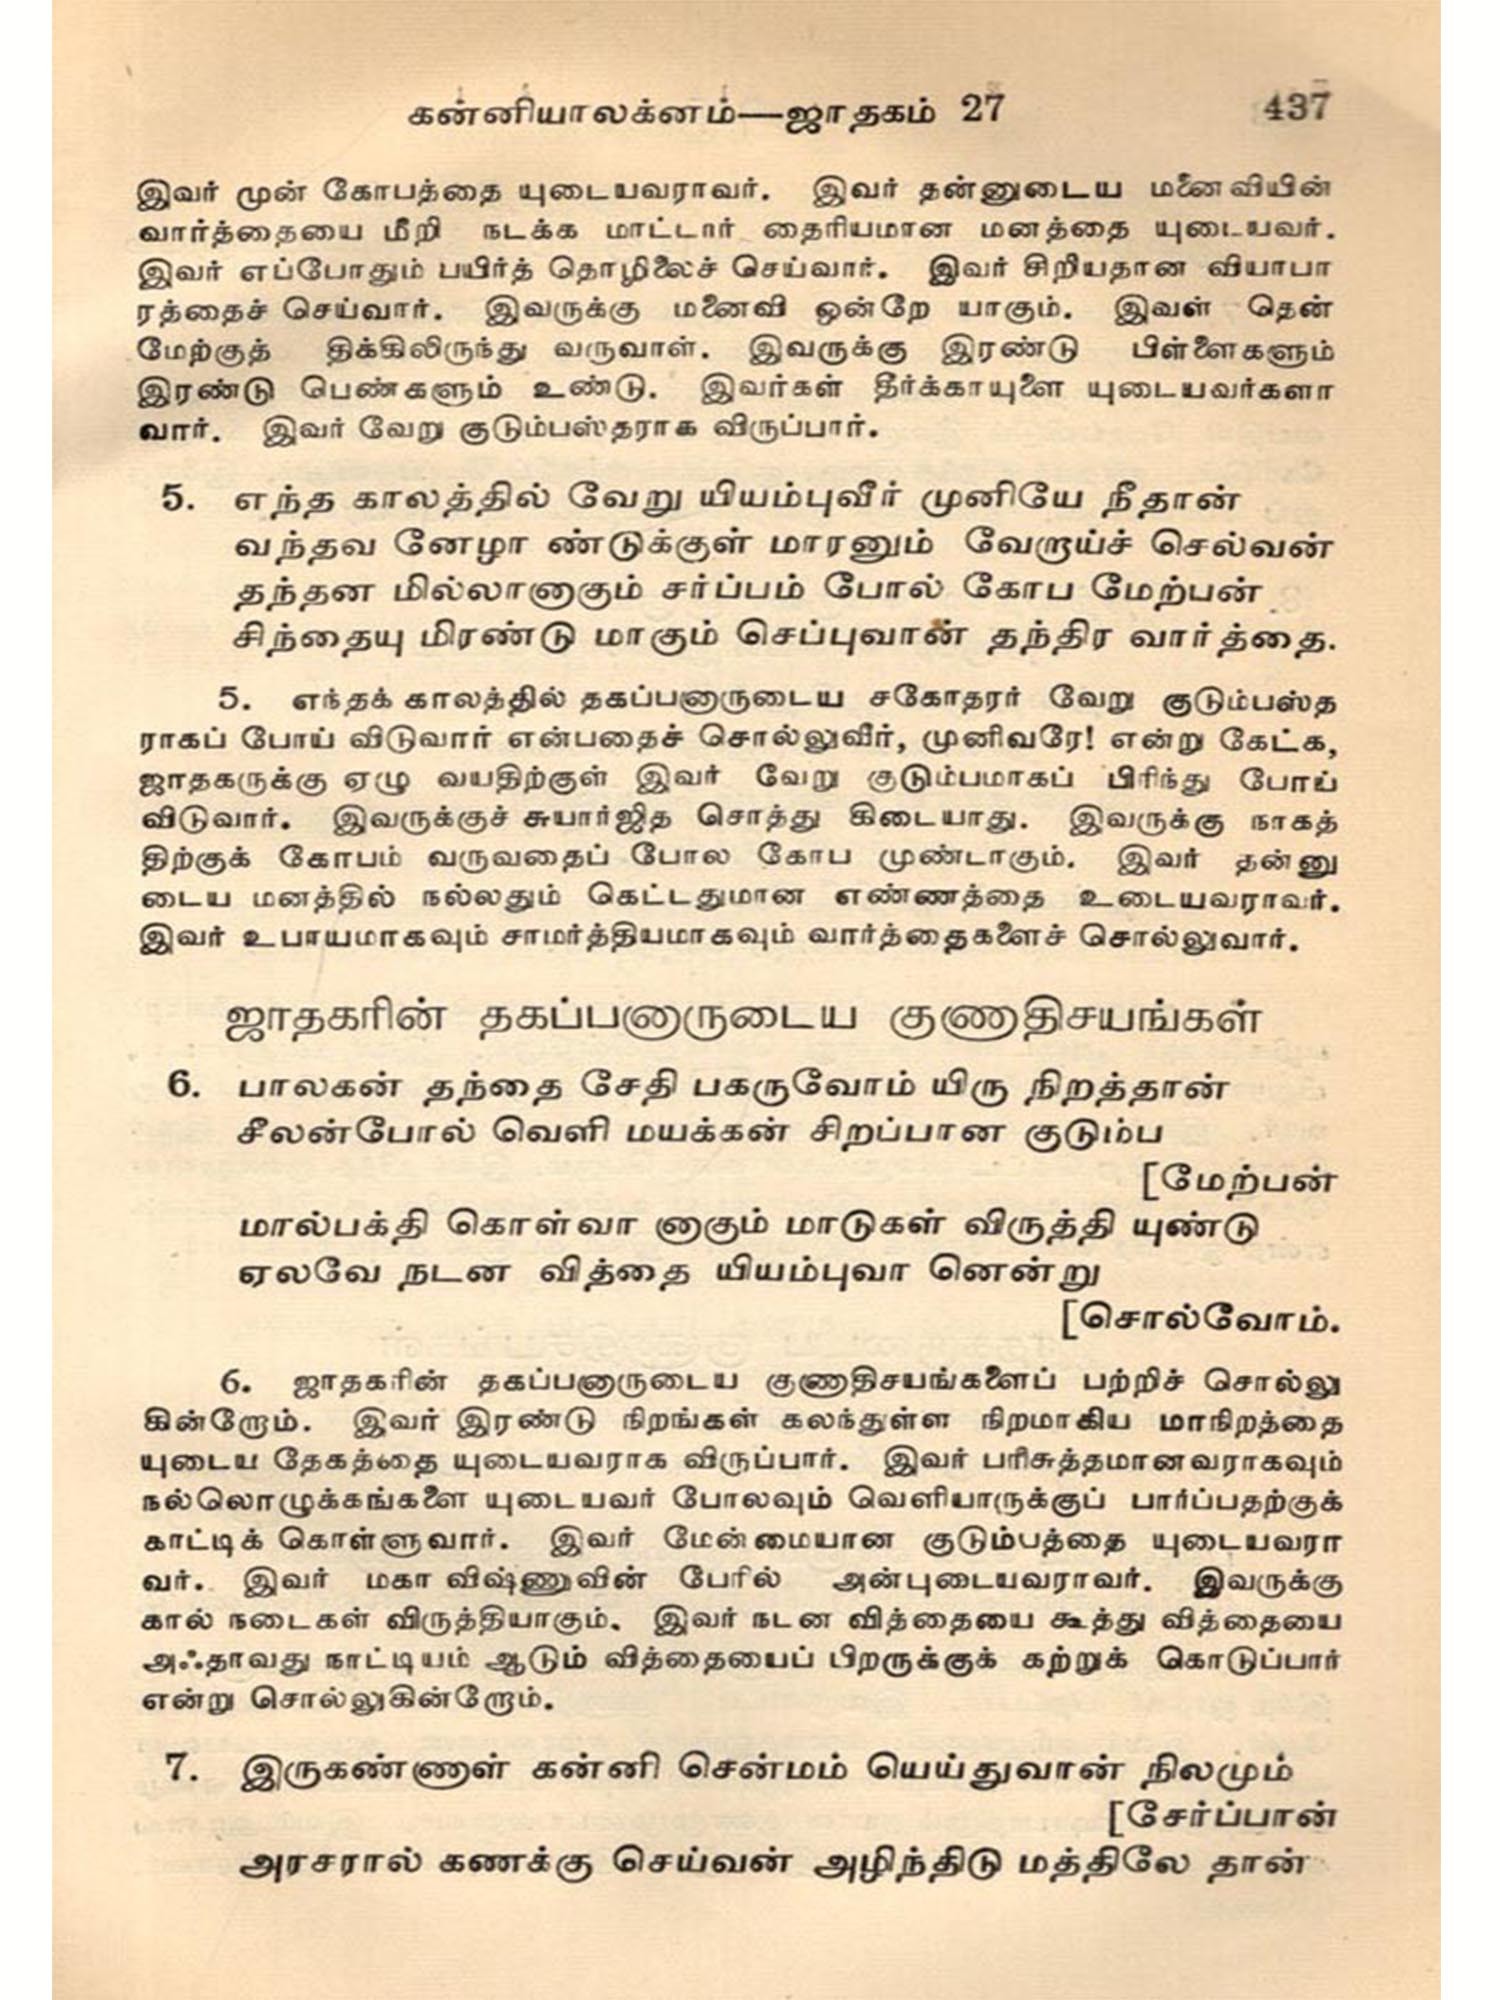 கன்னியாலக்னம்—ஜாதகம் 27 437
இவர் முன் கோபத்தை யுடையவராவர். இவர் தன்னுடைய மனைவியின்
வார்த்தையை மீறி நடக்க மாட்டார் தைரியமான மனத்தை யுடையவர்.
இவர் எப்போதும் பயிர்த் தொழிலைச் செய்வார். இவர் சிறியதான வியாபா
ரத்தைச் செய்வார். இவருக்கு மனைவி ஒன்றே யாகும். இவள் தென்
மேற்குத் திக்கிலிருந்து வருவாள். இவருக்கு இரண்டு பிள்ளைகளும்
இரண்டு பெண்களும் உண்டு. இவர்கள் தீர்க்காயுளை யுடையவர்களா
வார். இவர் வேறு குடும்பஸ்தராக விருப்பார்.
5. எந்த காலத்தில் வேறு யியம்புவீர் முனியே நீதான்
வந்தவ னேழா ண்டுக்குள் மாரனும் வேறாய்ச் செல்வன்
தந்தன மில்லானாகும் சர்ப்பம் போல் கோப மேற்பன்
சிந்தையு மிரண்டு மாகும் செப்புவான் தந்திர வார்த்தை.
5. எந்தக் காலத்தில் தகப்பனாருடைய சகோதரர் வேறு குடும்பஸ்த
ராகப் போய் விடுவார் என்பதைச் சொல்லுவீர், முனிவரே! என்று கேட்க,
ஜாதகருக்கு ஏழு வயதிற்குள் இவர் வேறு குடும்பமாகப் பிரிந்து போய்
விடுவார். இவருக்குச் சுயார்ஜித சொத்து கிடையாது. இவருக்கு நாகத்
திற்குக் கோபம் வருவதைப் போல கோப முண்டாகும். இவர் தன்னு
டைய மனத்தில் நல்லதும் கெட்டதுமான எண்ணத்தை உடையவராவர்.
இவர் உபாயமாகவும் சாமர்த்தியமாகவும் வார்த்தைகளைச் சொல்லுவார்.
ஜாதகரின் தகப்பனாருடைய குணாதிசயங்கள்
6. பாலகன் தந்தை சேதி பகருவோம் யிரு நிறத்தான்
சீலன்போல் வெளி மயக்கன் சிறப்பான குடும்ப
[மேற்பன்
மால்பக்தி கொள்வா னாகும் மாடுகள் விருத்தி யுண்டு
ஏலவே நடன வித்தை யியம்புவா னென்று
[சொல்வோம்.
6. ஜாதகரின் தகப்பனாருடைய குணாதிசயங்களைப் பற்றிச் சொல்லு
கின்றோம். இவர் இரண்டு நிறங்கள் கலந்துள்ள நிறமாகிய மாநிறத்தை
யுடைய தேகத்தை யுடையவராக விருப்பார். இவர் பரிசுத்தமானவராகவும்
நல்லொழுக்கங்களை யுடையவர் போலவும் வெளியாருக்குப் பார்ப்பதற்குக்
காட்டிக் கொள்ளுவார். இவர் மேன்மையான குடும்பத்தை யுடையவரா
வர். இவர் மகா விஷ்ணுவின் பேரில் அன்புடையவராவர். இவருக்கு
கால் நடைகள் விருத்தியாகும். இவர் நடன வித்தையை கூத்து வித்தையை
அஃதாவது நாட்டியம் ஆடும் வித்தையைப் பிறருக்குக் கற்றுக் கொடுப்பார்
என்று சொல்லுகின்றோம்.
7. இருகண்ணாள் கன்னி சென்மம் யெய்துவான் நிலமும்
[சேர்ப்பான்
அரசரால் கணக்கு செய்வன் அழிந்திடு மத்திலே தான்